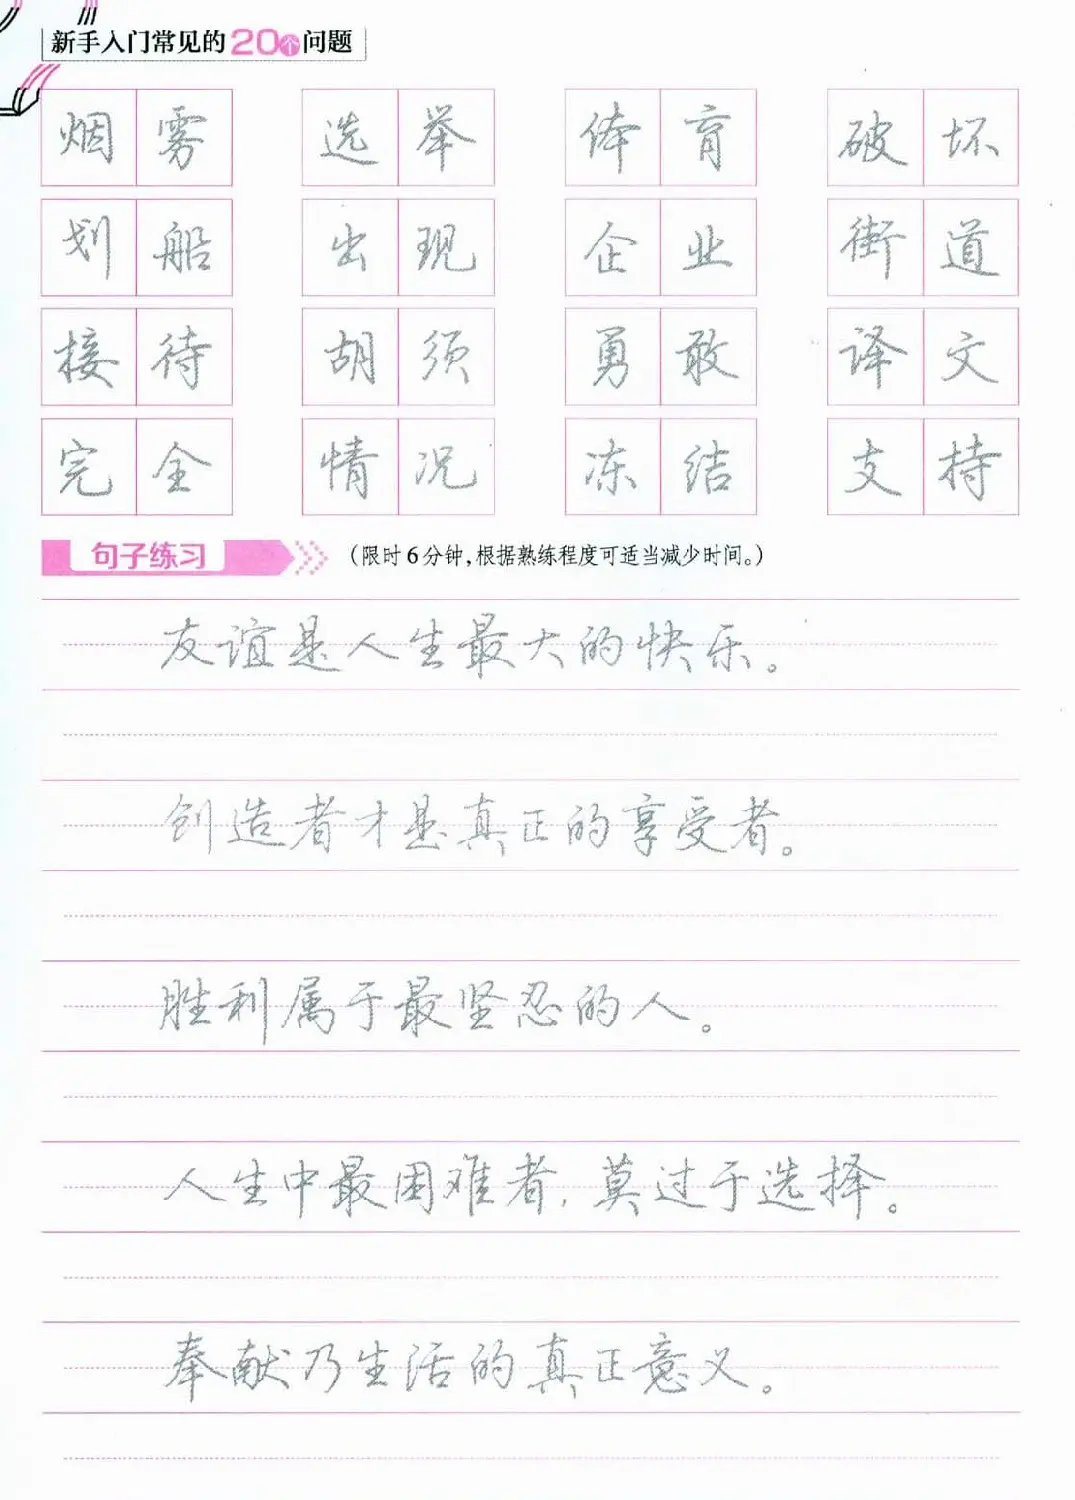 新手入门常见的20个问题
烟雾 选举 体育 破坏
划船 出现 企业 街道
接待 胡须 勇敢 译文
完全 情况 冻结 支持
句子练习 （限时6分钟，根据熟练程度可适当减少时间。）
友谊是人生最大的快乐。
创造者才是真正的享受者。
胜利属于最坚忍的人。
人生中最困难者，莫过于选择。
奉献乃生活的真正意义。